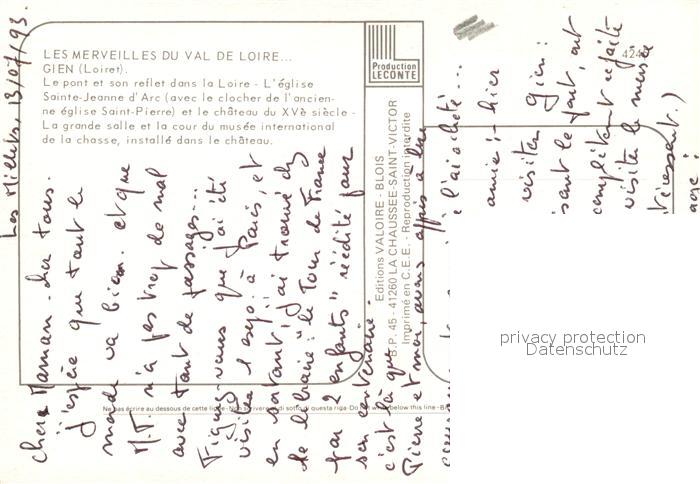 LES MERVEILLES DU VAL DE LOIRE...
GIEN (Loiret).
Le pont et son reflet dans la Loire - L'église
Sainte-Jeanne d'Arc (avec le clocher de l'ancien-
ne église Saint-Pierre) et le château du XVè siècle -
La grande salle et la cour du musée international
de la chasse, installé dans le château.
Production
LECONTE
424
Editions VALOIRE - BLOIS
B.P. 45 - 41260 LA CHAUSSEE-SAINT-VICTOR
Imprimé en C.E.E. - Reproduction interdite
Ne pas écrire au dessous de cette ligne - Non scrivere al di sotto di questa riga - Do not write below this line - B
Les Millets, 13/07/93.
Chère Maman - cher tous.
J'espère que tout le
monde va bien. et que
M.T. n'a pas trop de mal
avec tant de passages...
Figurez-vous que j'ai été
visitée l'expo à Paris, et
en sortant, j'ai trouvé
de librairie: "le Tour de France
par 2 enfants" réédité pour
son centenaire.
c'est là que
Pierre et moi, avons appris à lire
je l'ai acheté...
amie:- hier
visiter Gien:
sant le pont, ont
complètement refaite
visiter le musée
téressant.)
privacy protection
Datenschutz